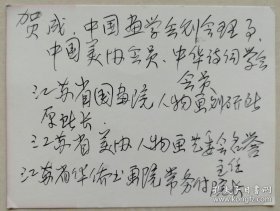 贺成，中国画学会创会理事
中国美协会员、中华诗词学会
会员
江苏省国画院人物画创研所
原所长、
江苏省美协人物画艺委会名誉
主任
江苏省华侨书画院常务付院长